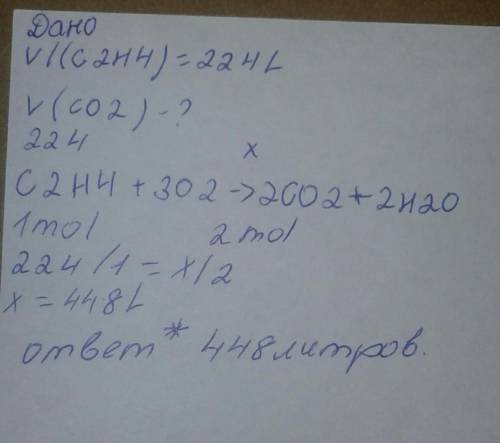 Дано
V((C2H4)=224L
V(CO2)-?
224 x
C2H4+3O2->2CO2+2H2O
1mol 2mol
224/1=x/2
x=448L
ответ* 448литров.